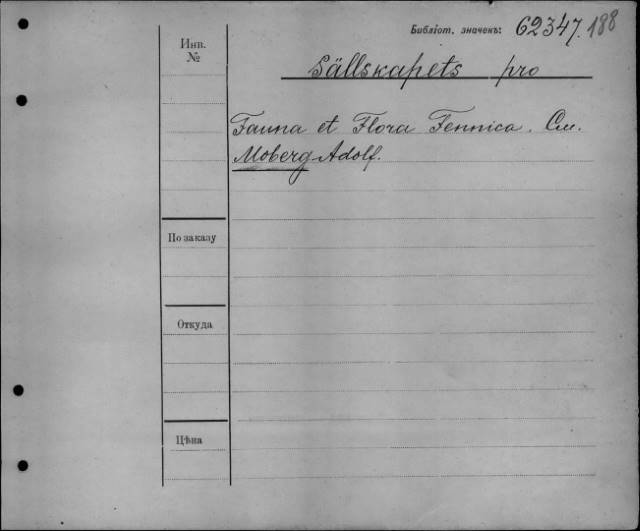 Библіот. значекъ: 62347. 188
Инв. №
Sällskapets pro
Fauna et Flora Fennica. См.
Moberg Adolf.
По заказу
Откуда
Цѣна